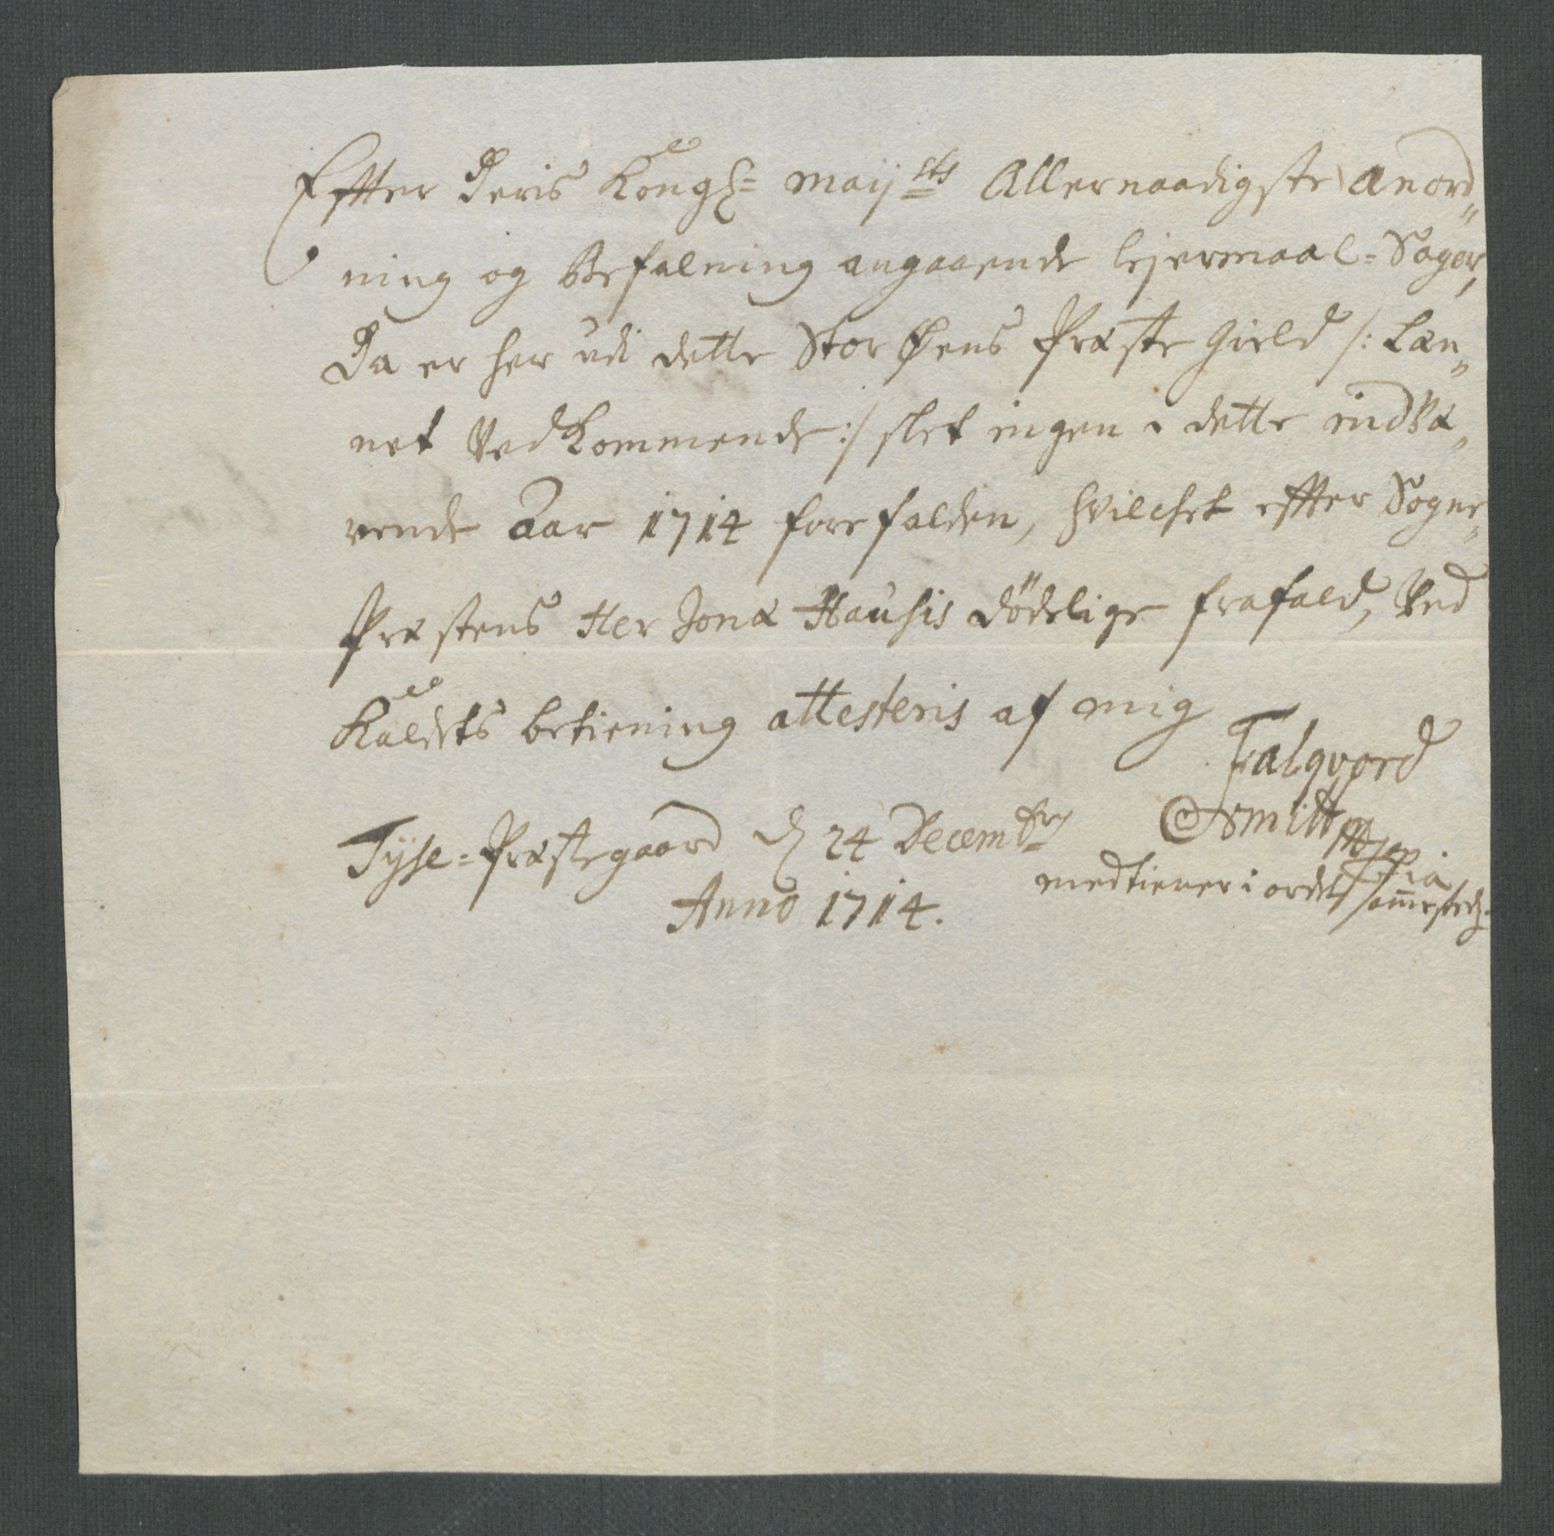 Effter Deris Kongl= Maij:sts Allernaadigste anord„
ning og Befalning angaaende lejermaal=Sager,
Da er her udi dette Stor Øens Præste Gield /: Læn„
net Vedkommende :/ slet ingen i dette indvæ„
rende Aar 1714 forefalden, hvilchet effter Sogne„
Præstens Her Jonæ Hausis dödelige frafald, Ved
Kaldets betiening attesteris af mig
Falqvord
Smitt
Tysse=Præstegaard d 24 Decembr
medtiener i ordet sammestedz.
Anno 1714.